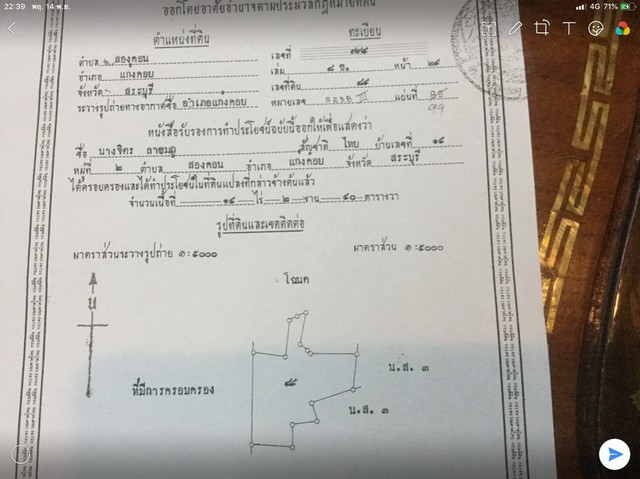 22:39 พฤ. 14 พ.ย. 4G 71%
ออกโดยอาศัยอำนาจตามประมวลกฎหมายที่ดิน
ตำแหน่งที่ดิน
ทะเบียน
ตำบล สองคอน
เลขที่ ๗๘๔
อำเภอ แก่งคอย
เล่ม ๘ ข. หน้า ๒๔
จังหวัด สระบุรี
เลขที่ดิน ๕๕
ระวางรูปถ่ายทางอากาศชื่อ อำเภอแก่งคอย
หมายเลข 5238 III แผ่นที่
99
หนังสือรับรองการทำประโยชน์ฉบับนี้ออกให้เพื่อแสดงว่า
ชื่อ นางจิตร สัญชาติ ไทย บ้านเลขที่ ๑๔
หมู่ที่ ๒ ตำบล สองคอน อำเภอ แก่งคอย จังหวัด สระบุรี
ได้ครอบครองและได้ทำประโยชน์ในที่ดินแปลงที่กล่าวข้างต้นแล้ว
จำนวนเนื้อที่ ๑๔ ไร่ ๒ งาน ๙๐ ตารางวา
รูปที่ดินและเขตติดต่อ
มาตราส่วนระวางรูปถ่าย ๑:๕๐๐๐
มาตราส่วน ๑:๕๐๐๐
น
โฉนด
ที่มีการครอบครอง
๕๕
น.ส. ๓
น.ส. ๓